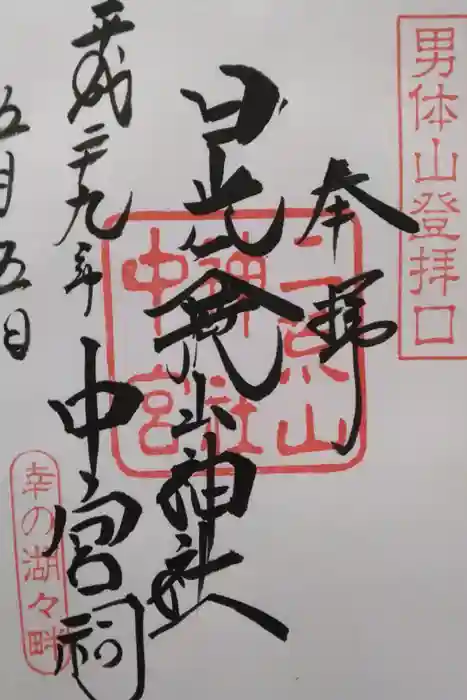 男体山登拝口
奉拝
二荒山
神社
中宮
日光二荒山神社
中宮祠
平成二十九年
五月五日
幸の湖々畔